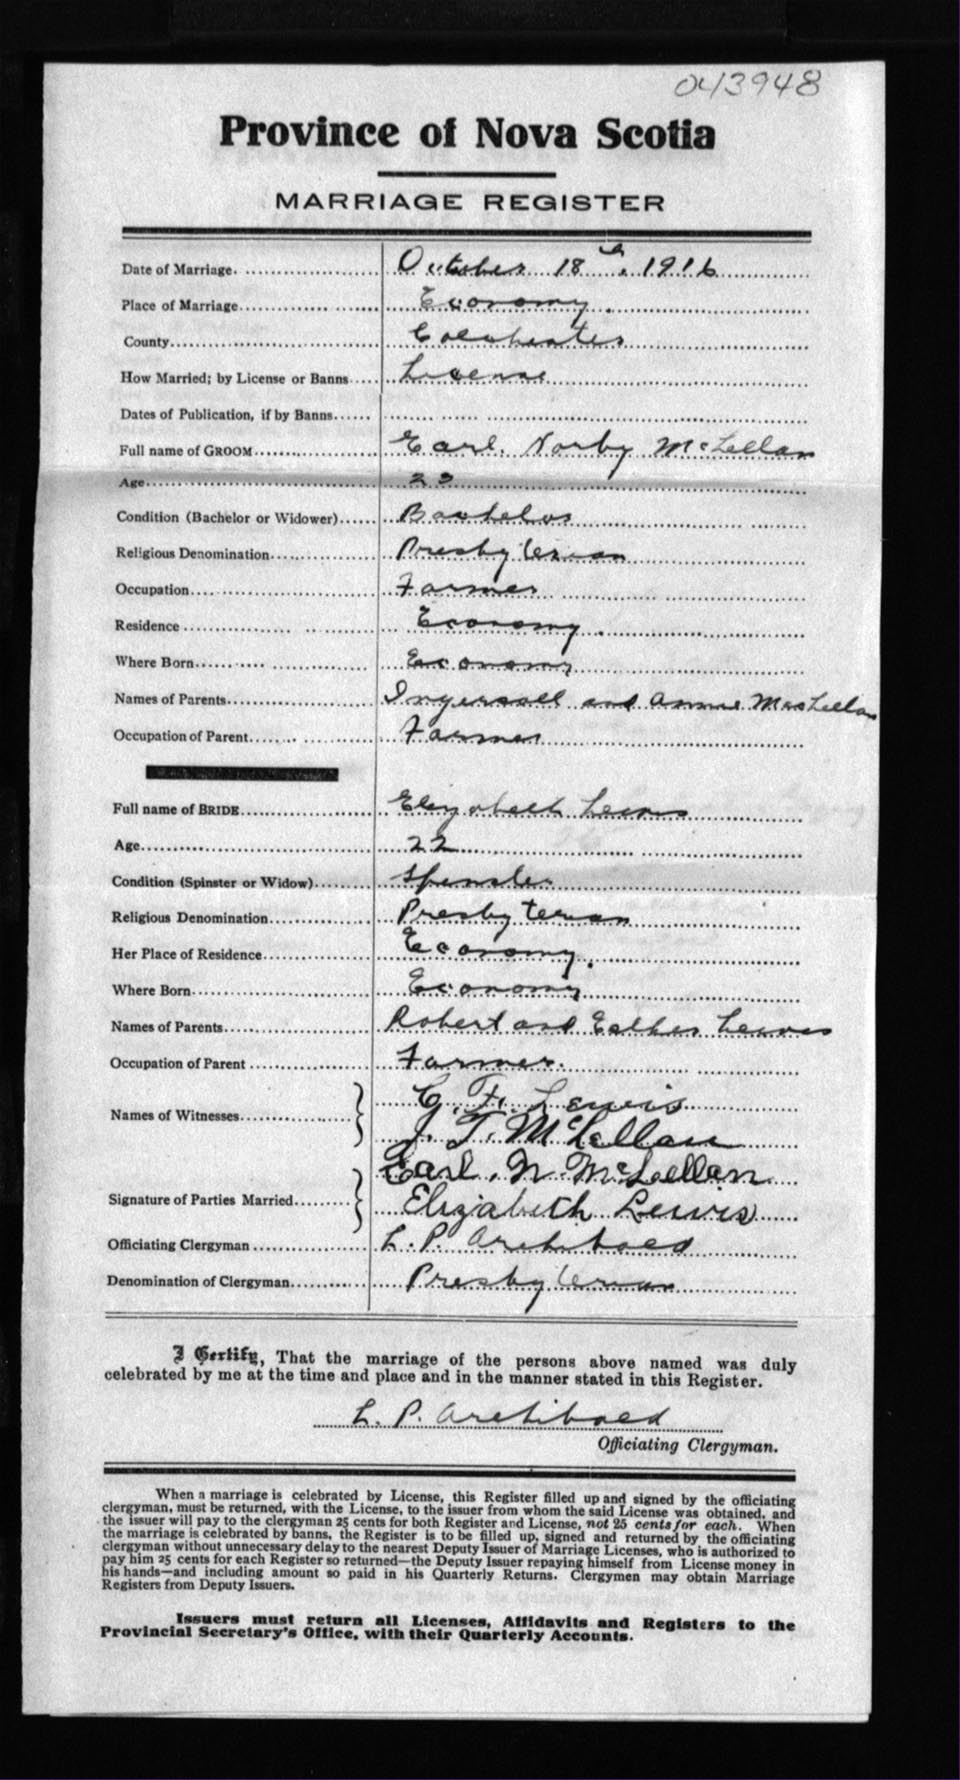 043948
Province of Nova Scotia
MARRIAGE REGISTER
Date of Marriage. October 18th. 1916
Place of Marriage Economy.
County Colchester
How Married; by License or Banns License
Dates of Publication, if by Banns
Full name of GROOM Earl. Norby McLellan
Age 23
Condition (Bachelor or Widower) Bachelor
Religious Denomination Presbyterian
Occupation Farmer
Residence Economy.
Where Born Economy
Names of Parents Ingersoll and Annie MacLellan
Occupation of Parent Farmer
Full name of BRIDE Elizabeth Lewis
Age 22
Condition (Spinster or Widow) Spinster
Religious Denomination Presbyterian
Her Place of Residence Economy.
Where Born Economy
Names of Parents Robert and Esther Lewis
Occupation of Parent Farmer.
Names of Witnesses C. F. Lewis
J. T. McLellan
Signature of Parties Married Earl. N. McLellan
Elizabeth Lewis
Officiating Clergyman L. P. Archibald
Denomination of Clergyman Presbyterian
I Certify, That the marriage of the persons above named was duly
celebrated by me at the time and place and in the manner stated in this Register.
L. P. Archibald
Officiating Clergyman.
When a marriage is celebrated by License, this Register filled up and signed by the officiating
clergyman, must be returned, with the License, to the issuer from whom the said License was obtained, and
the issuer will pay to the clergyman 25 cents for both Register and License, not 25 cents for each. When
the marriage is celebrated by banns, the Register is to be filled up, signed and returned by the officiating
clergyman without unnecessary delay to the nearest Deputy Issuer of Marriage Licenses, who is authorized to
pay him 25 cents for each Register so returned—the Deputy Issuer repaying himself from License money in
his hands—and including amount so paid in his Quarterly Returns. Clergymen may obtain Marriage
Registers from Deputy Issuers.
Issuers must return all Licenses, Affidavits and Registers to the
Provincial Secretary's Office, with their Quarterly Accounts.